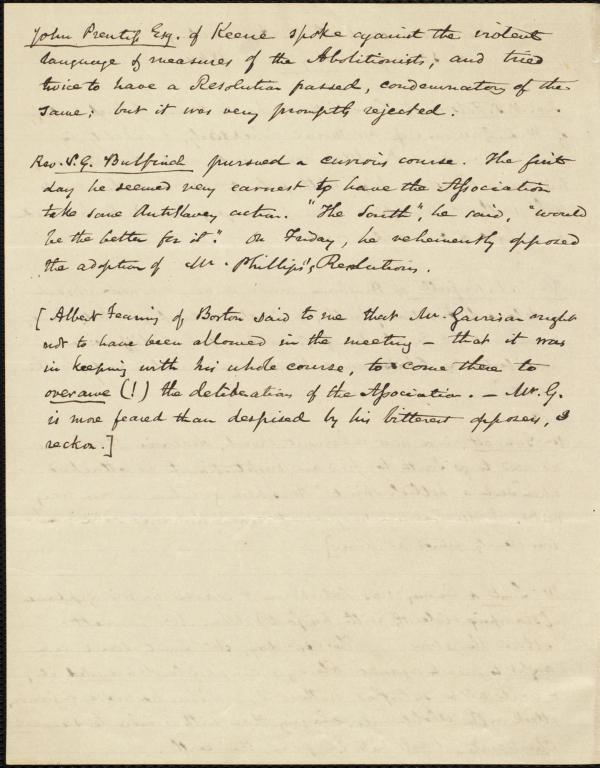 John Prentiss Esq. of Keene spoke against the violent
language & measures of the Abolitionists; and tried
twice to have a Resolution passed, condemnatory of the
same; but it was very promptly rejected.
Rev. S. G. Bulfinch pursued a curious course. The first
day he seemed very earnest to have the Association
take some Antislavery action. "The South", he said, "would
be the better for it." On Friday, he vehemently opposed
the adoption of Mr. Phillips's Resolutions.
[Albert Fearing of Boston said to me that Mr. Garrison ought
not to have been allowed in the meeting – that it was
in keeping with his whole course, to come there to
overawe (!) the deliberations of the Association. – Mr. G.
is more feared than despised by his bitterest opposers, I
reckon.]